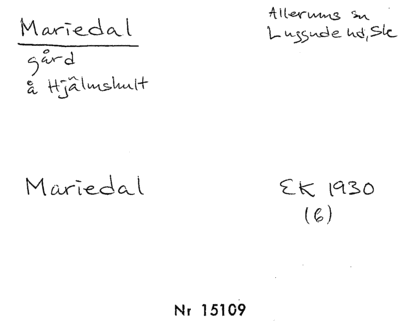 Mariedal
gård
å Hjälmshult
Allerums sn
Luggude hd, Sk
Mariedal
EK 1930
(6)
Nr 15109